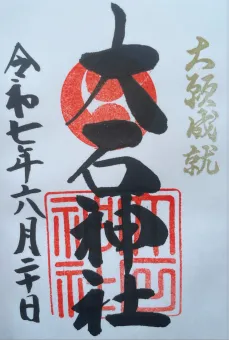 大願成就
大石神社
令和七年六月二十日